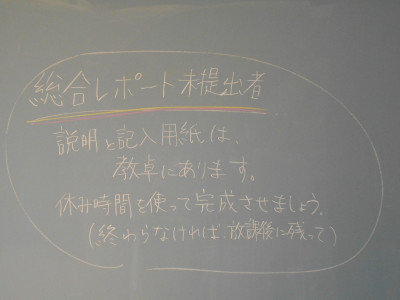 総合レポート未提出者
説明と記入用紙は、
教卓にあります。
休み時間を使って完成させましょう。
(終わらなければ、放課後に残って)